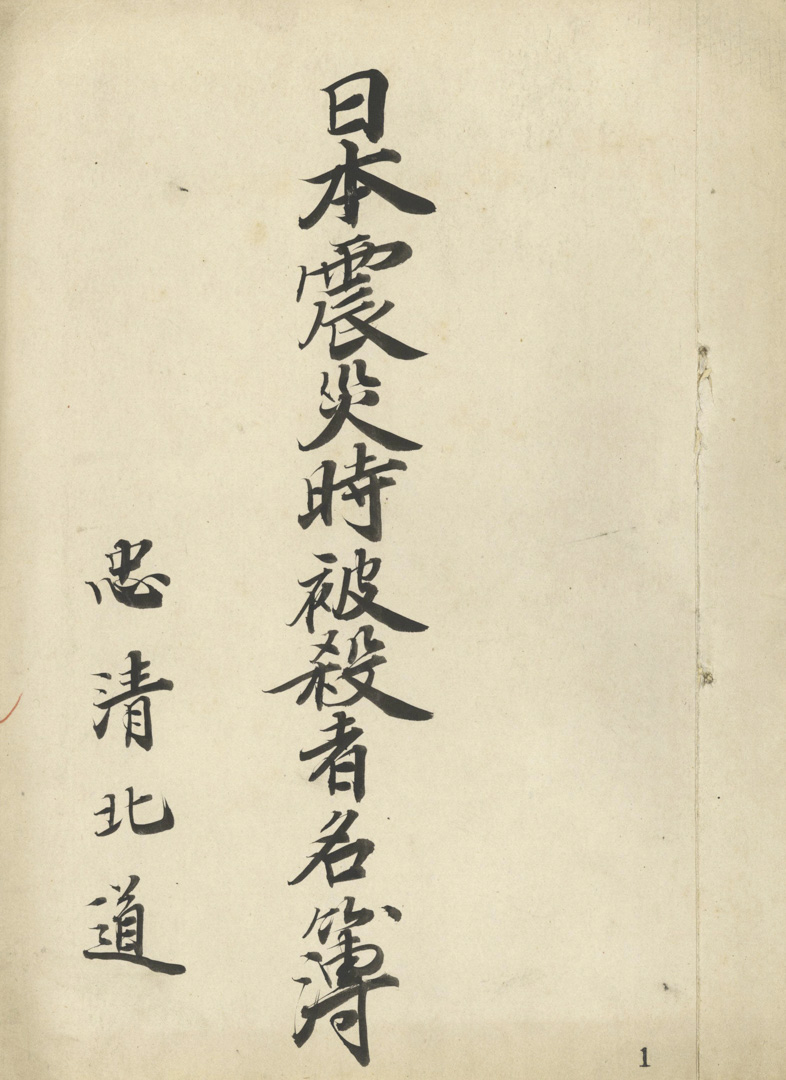 日本震災時被殺者名簿
忠清北道
1